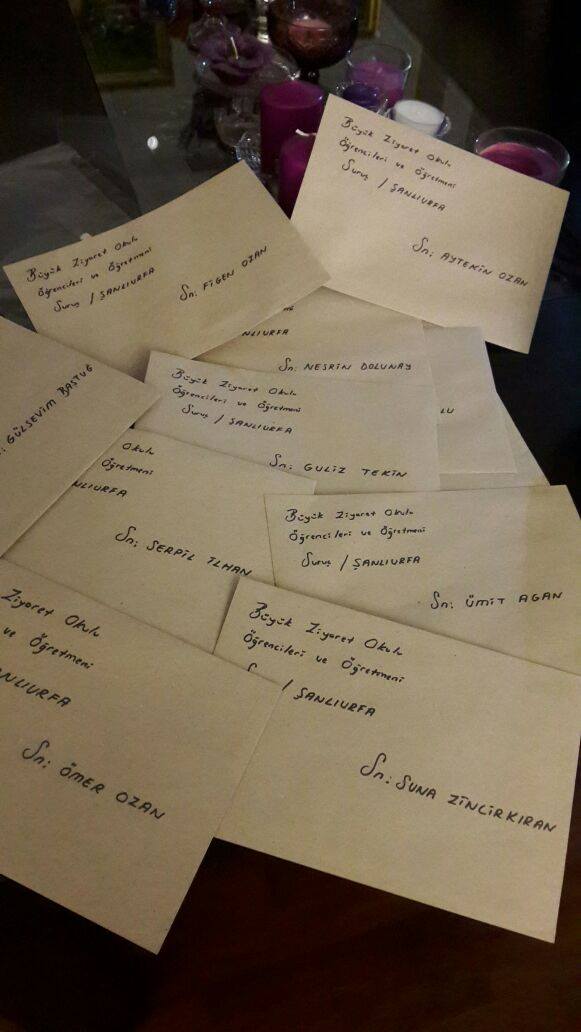 Büyük Ziyaret Okulu
Öğrencileri ve Öğretmeni
Suruç / ŞANLIURFA
Sn: AYTEKİN OZAN
Büyük Ziyaret Okulu
Öğrencileri ve Öğretmeni
Suruç / ŞANLIURFA
Sn: FİGEN OZAN
NLIURFA
Sn: NESRİN DOLUNAY
LU
: GÜLSEVİM BASTUG
Büyük Ziyaret Okulu
Öğrencileri ve Öğretmeni
Suruç / ŞANLIURFA
Sn: GULİZ TEKİN
Okulu
Öğretmeni
NLIURFA
Sn: SERPİL İLHAN
Büyük Ziyaret Okulu
Öğrencileri ve Öğretmeni
Suruç / ŞANLIURFA
Sn: ÜMİT AGAN
Ziyaret Okulu
ve Öğretmeni
NLIURFA
Sn: ÖMER OZAN
Büyük Ziyaret Okulu
Öğrencileri ve Öğretmeni
/ ŞANLIURFA
Sn: SUNA ZİNCİRKIRAN